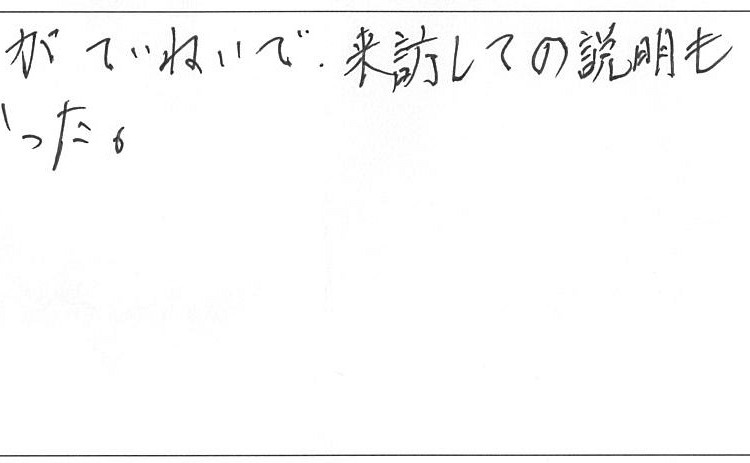 がていねいで、来訪しての説明も
かった。